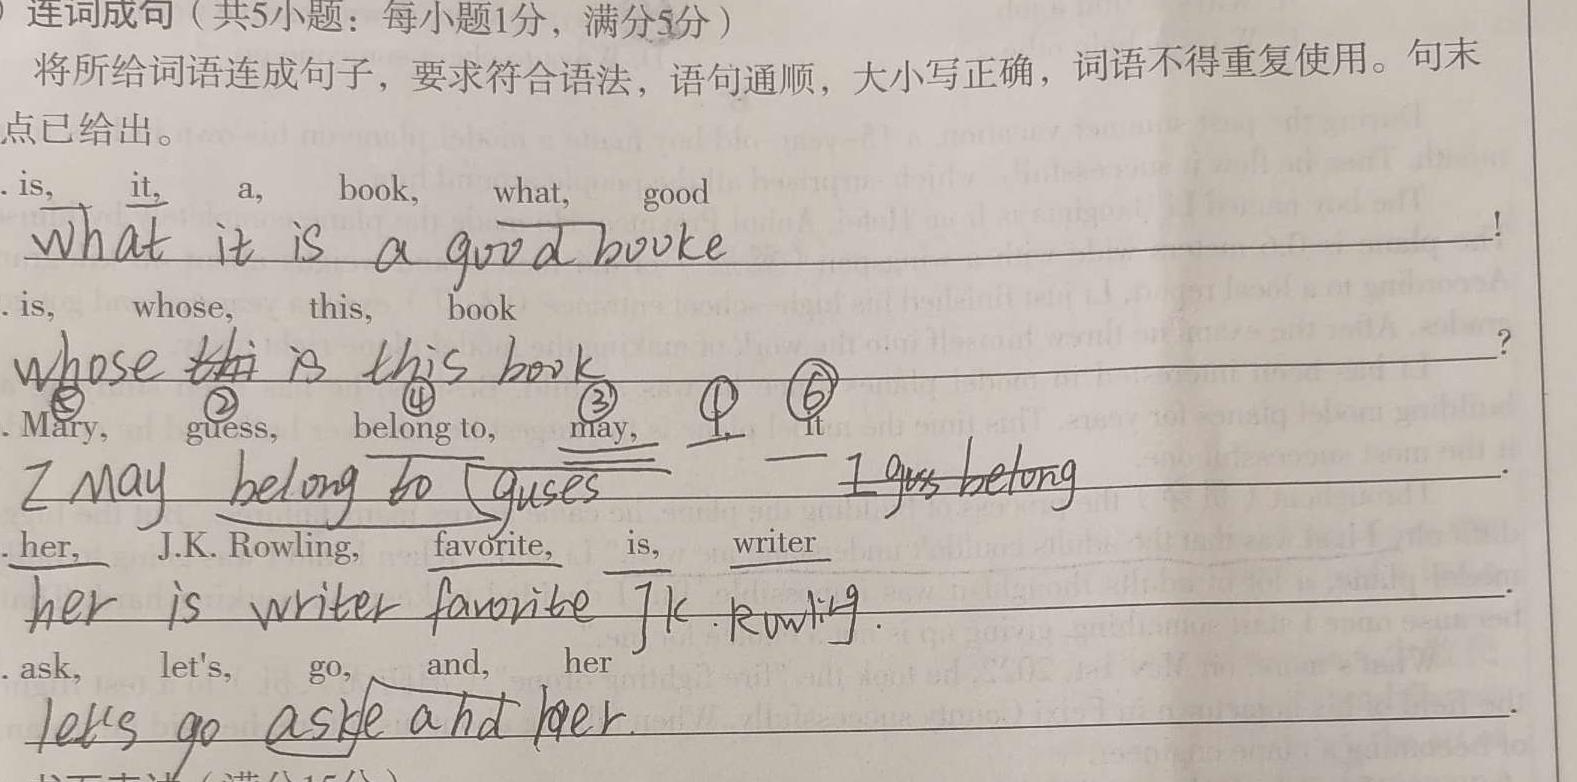 连词成句（共5小题：每小题1分，满分5分）
将所给词语连成句子，要求符合语法，语句通顺，大小写正确，词语不得重复使用。句末
点已给出。
. is, it, a, book, what, good
What it is a good booke !
. is, whose, this, book
whose thi is this book ?
⑤ ② ④ ③ ① ⑥
. Mary, guess, belong to, may, I, it
I may belong to guses I guss belong .
her, J.K. Rowling, favorite, is, writer
her is writer favorite Jk .Rowling. .
. ask, let's, go, and, her
let's go aske and her. .
（满分15分）